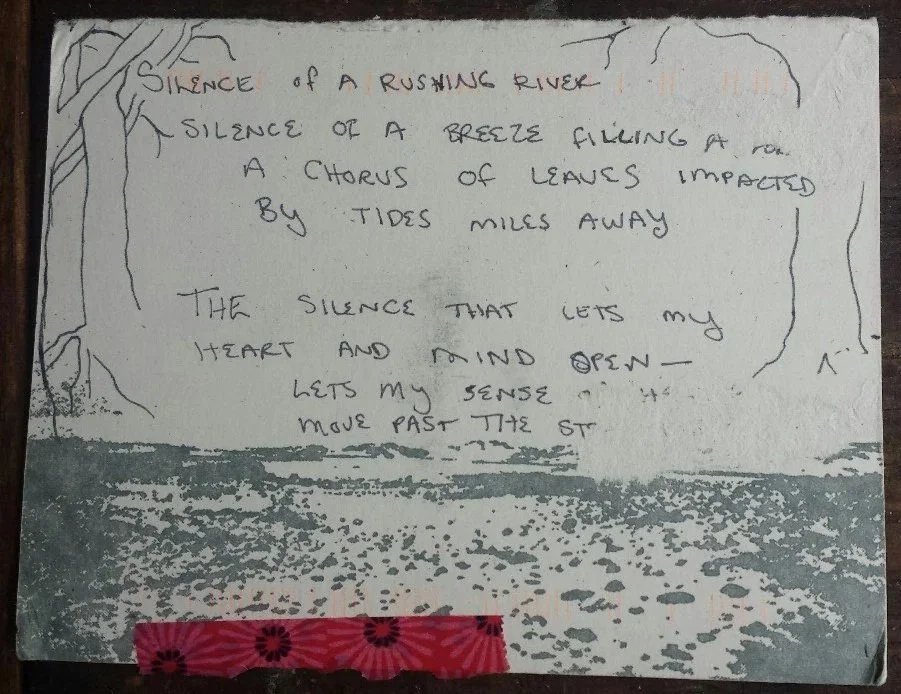 SILENCE OF A RUSHING RIVER
SILENCE OF A BREEZE FILLING A
A CHORUS OF LEAVES IMPACTED
BY TIDES MILES AWAY
THE SILENCE THAT LETS MY
HEART AND MIND OPEN—
LETS MY SENSE
MOVE PAST THE ST